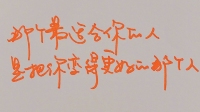 那个最适合你的人
是把你变得更好的那个人